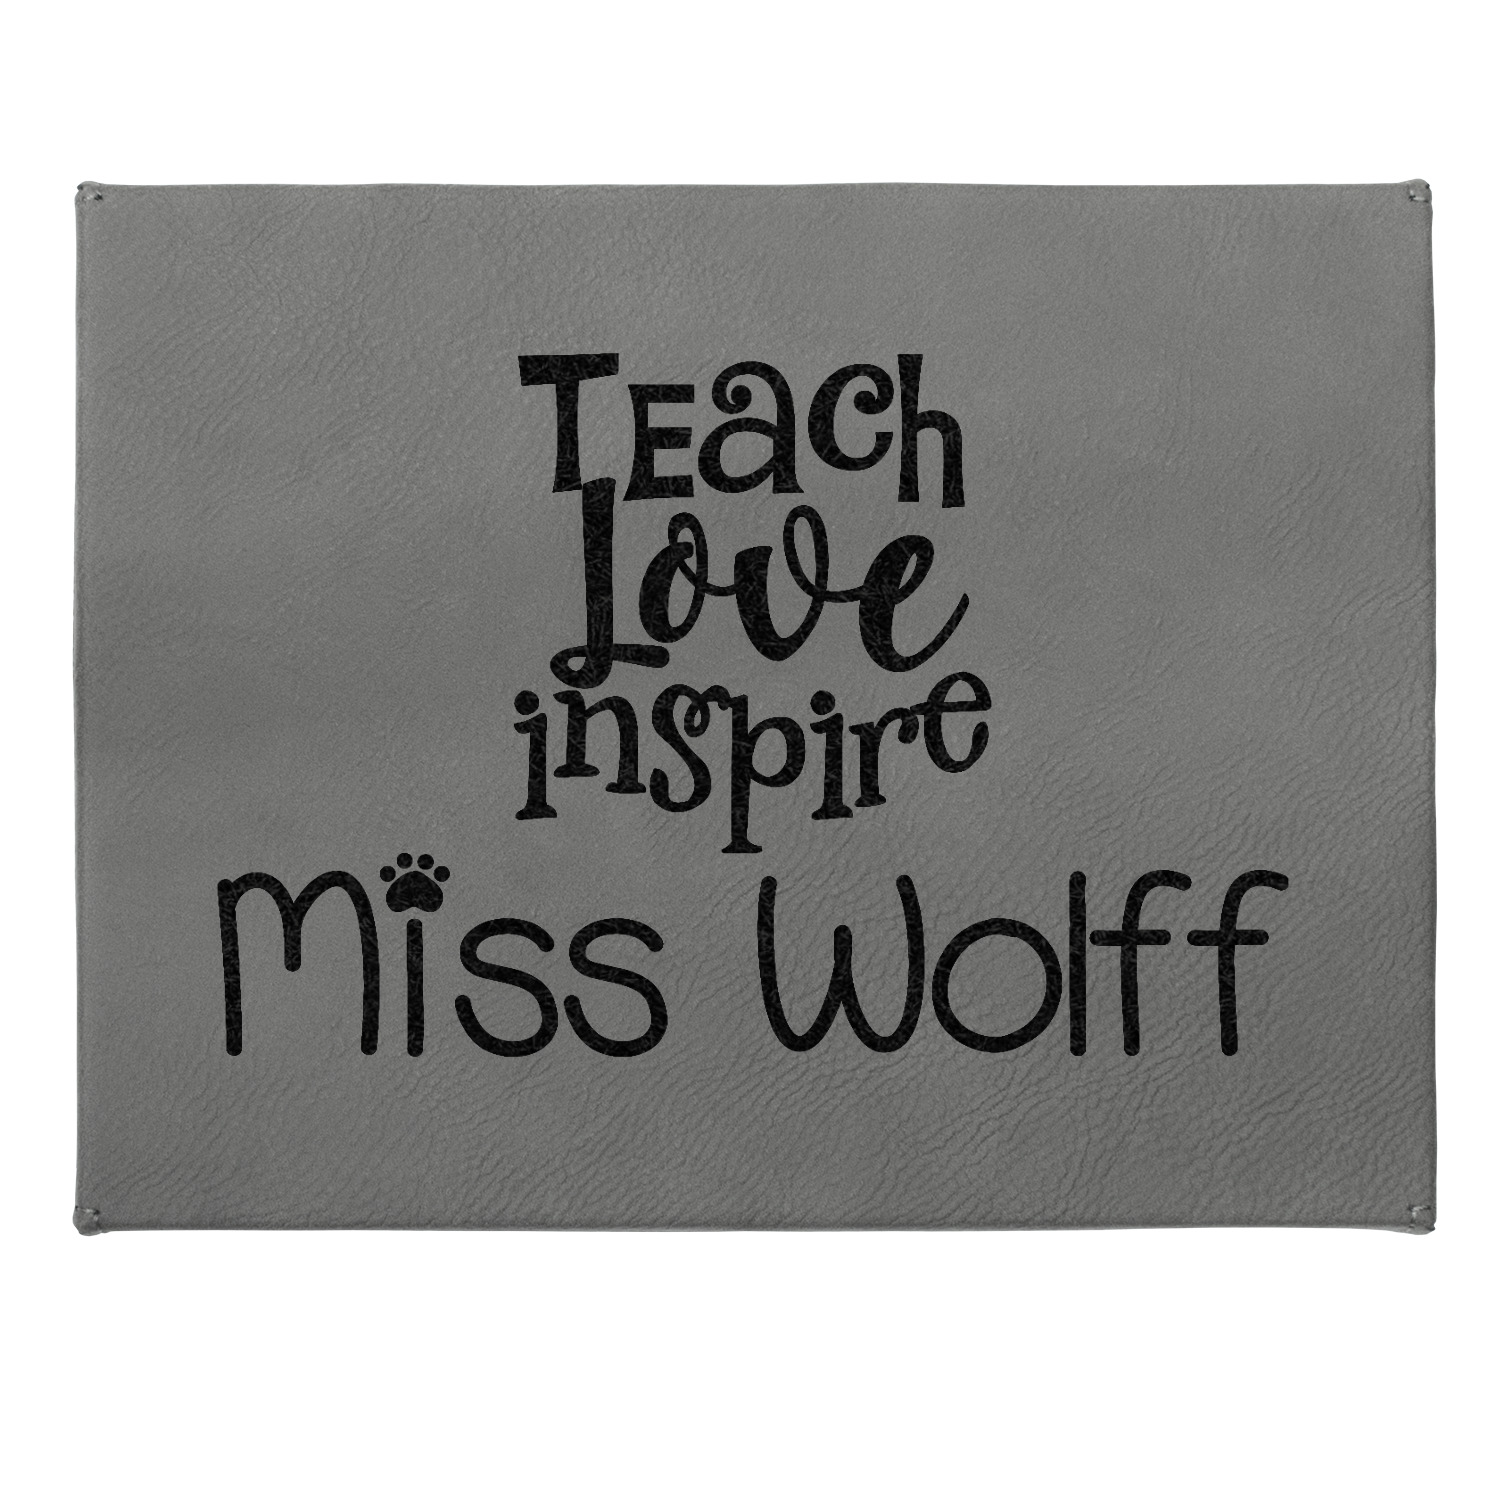 Teach
Love
inspire
Miss Wolff